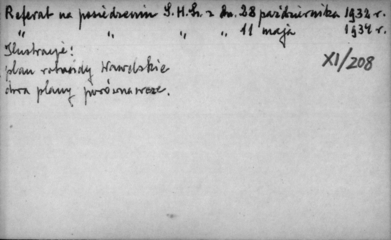 Referat na posiedzeniu S.H.S. z dn. 28 października 1932 r.
" " " " 11 maja 1934 r.
Ilustracje:
plan rotundy Wawelskie
dwa plany porównawcze.
XI/208